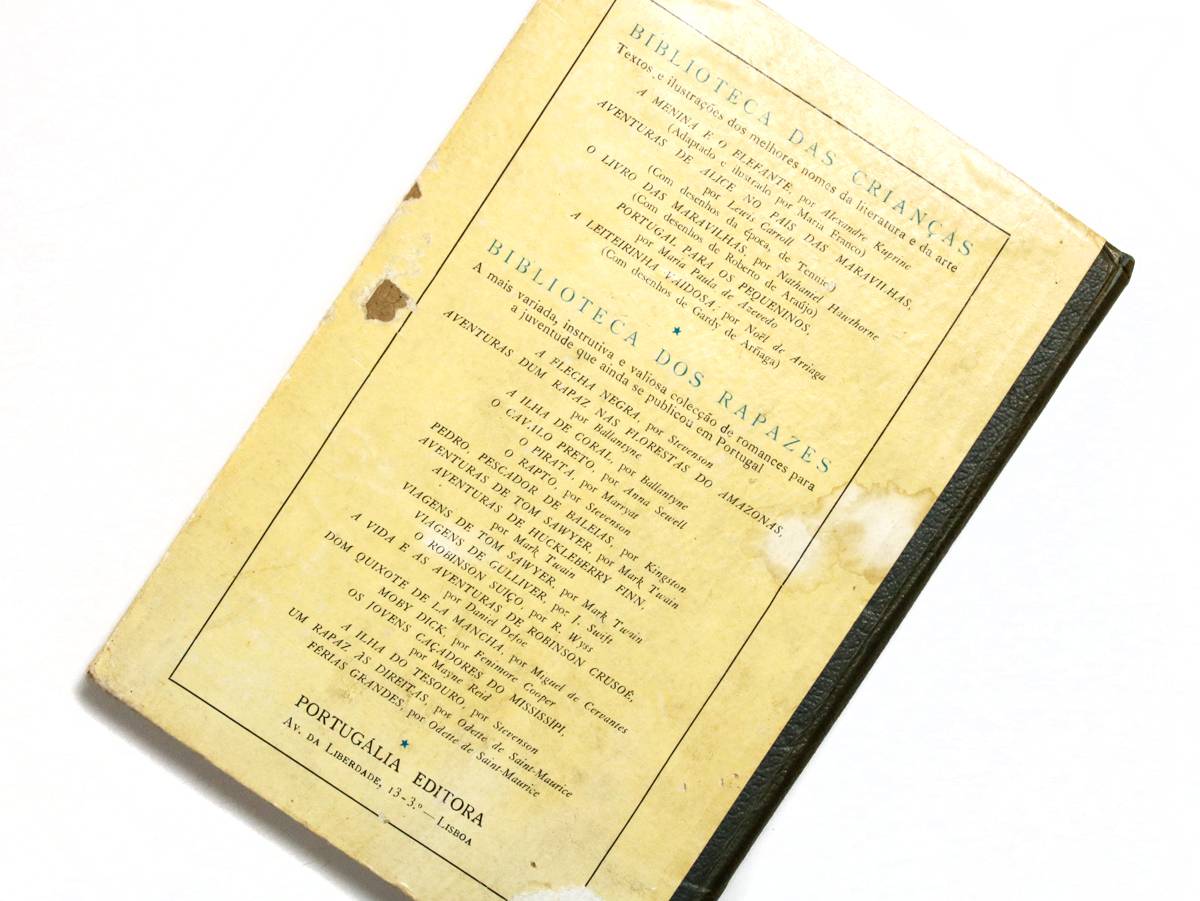 BIBLIOTECA DAS CRIANÇAS
Textos e ilustrações dos melhores nomes da literatura e da arte
A MENINA E O ELEFANTE, por Alexandre Kuprine
(Adaptado e ilustrado por Maria Franco)
AVENTURAS DE ALICE NO PAIS DAS MARAVILHAS,
por Lewis Carroll
(Com desenhos da época, de Tenniel)
O LIVRO DAS MARAVILHAS, por Nathaniel Hawthorne
(Com desenhos de Roberto de Araújo)
PORTUGAL PARA OS PEQUENINOS,
por Maria Paula de Azevedo
A LEITEIRINHA VAIDOSA, por Noël de Arriaga
(Com desenhos de Gardy de Arriaga)
BIBLIOTECA DOS RAPAZES
A mais variada, instrutiva e valiosa colecção de romances para
a juventude que ainda se publicou em Portugal
A FLECHA NEGRA, por Stevenson
AVENTURAS DUM RAPAZ NAS FLORESTAS DO AMAZONAS,
por Ballantyne
A ILHA DE CORAL, por Ballantyne
O CAVALO PRETO, por Anna Sewell
O PIRATA, por Marryat
O RAPTO, por Stevenson
PEDRO, PESCADOR DE BALEIAS, por Kingston
AVENTURAS DE TOM SAWYER, por Mark Twain
AVENTURAS DE HUCKLEBERRY FINN,
por Mark Twain
VIAGENS DE TOM SAWYER, por Mark Twain
VIAGENS DE GULLIVER, por J. Swift
O ROBINSON SUIÇO, por R. Wyss
A VIDA E AS AVENTURAS DE ROBINSON CRUSOÉ,
por Daniel Defoe
DOM QUIXOTE DE LA MANCHA, por Miguel de Cervantes
MOBY DICK, por Fenimore Cooper
OS JOVENS CAÇADORES DO MISSISSIPI,
por Mayne Reid
A ILHA DO TESOURO, por Stevenson
UM RAPAZ ÀS DIREITAS, por Odette de Saint-Maurice
FÉRIAS GRANDES, por Odette de Saint-Maurice
PORTUGÁLIA EDITORA
AV. DA LIBERDADE, 13-3.º — LISBOA